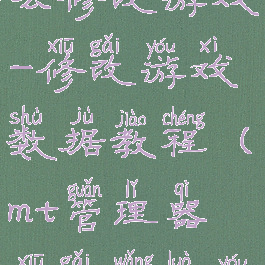 修改游戏
xiū gǎi yóu xì
-修改游戏
shù jù jiào chéng
数据教程（
guǎn lǐ qì
mt管理器
xiū gǎi wǎng luò yóu